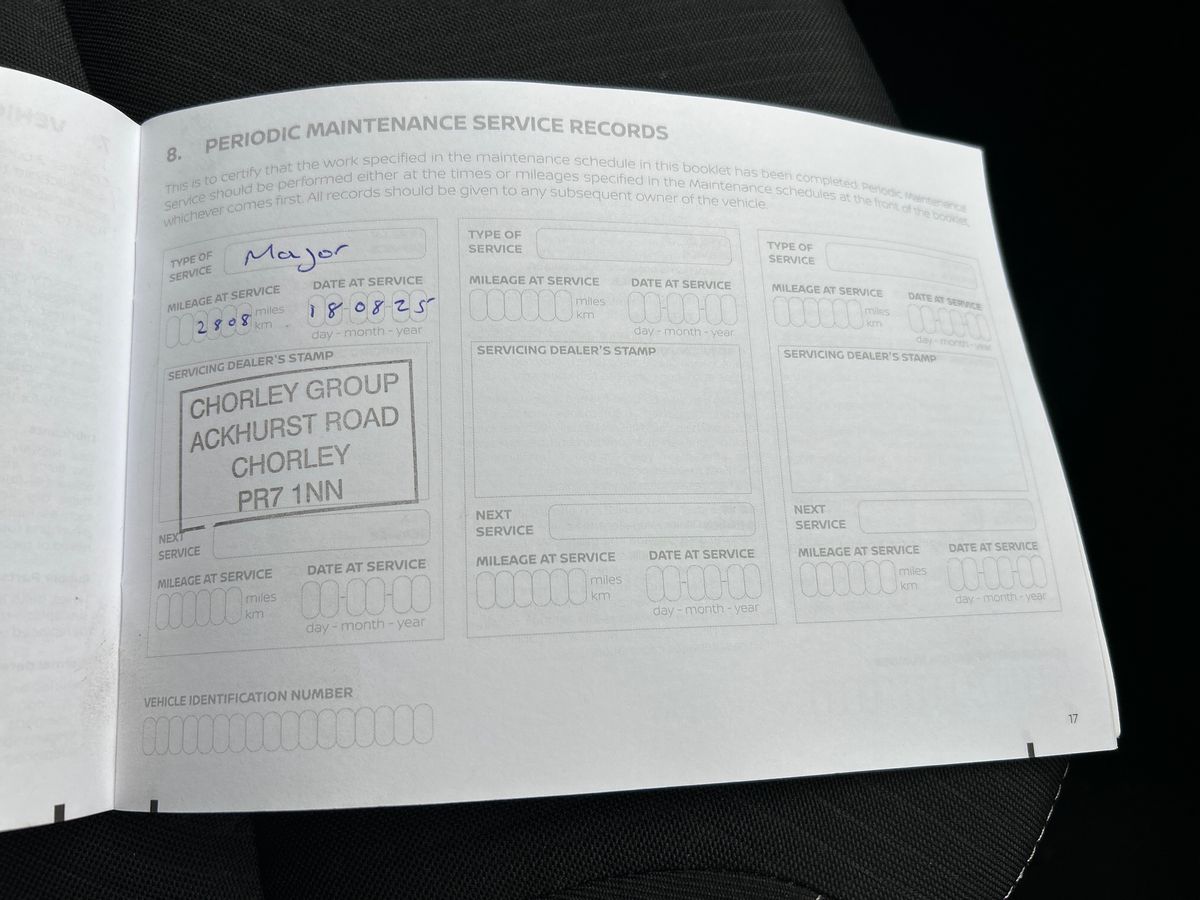 8. PERIODIC MAINTENANCE SERVICE RECORDS
This is to certify that the work specified in the maintenance schedule in this booklet has been completed. Periodic Maintenance
Service should be performed either at the times or mileages specified in the Maintenance schedules at the front of the booklet,
whichever comes first. All records should be given to any subsequent owner of the vehicle.
TYPE OF
SERVICE
Major
MILEAGE AT SERVICE
2808
miles
km
DATE AT SERVICE
18-08-25
day - month - year
SERVICING DEALER'S STAMP
CHORLEY GROUP
ACKHURST ROAD
CHORLEY
PR7 1NN
NEXT
SERVICE
MILEAGE AT SERVICE
miles
km
DATE AT SERVICE
day - month - year
TYPE OF
SERVICE
MILEAGE AT SERVICE
miles
km
DATE AT SERVICE
day - month - year
SERVICING DEALER'S STAMP
NEXT
SERVICE
MILEAGE AT SERVICE
miles
km
DATE AT SERVICE
day - month - year
TYPE OF
SERVICE
MILEAGE AT SERVICE
miles
km
DATE AT SERVICE
day - month - year
SERVICING DEALER'S STAMP
NEXT
SERVICE
MILEAGE AT SERVICE
miles
km
DATE AT SERVICE
day - month - year
VEHICLE IDENTIFICATION NUMBER
17